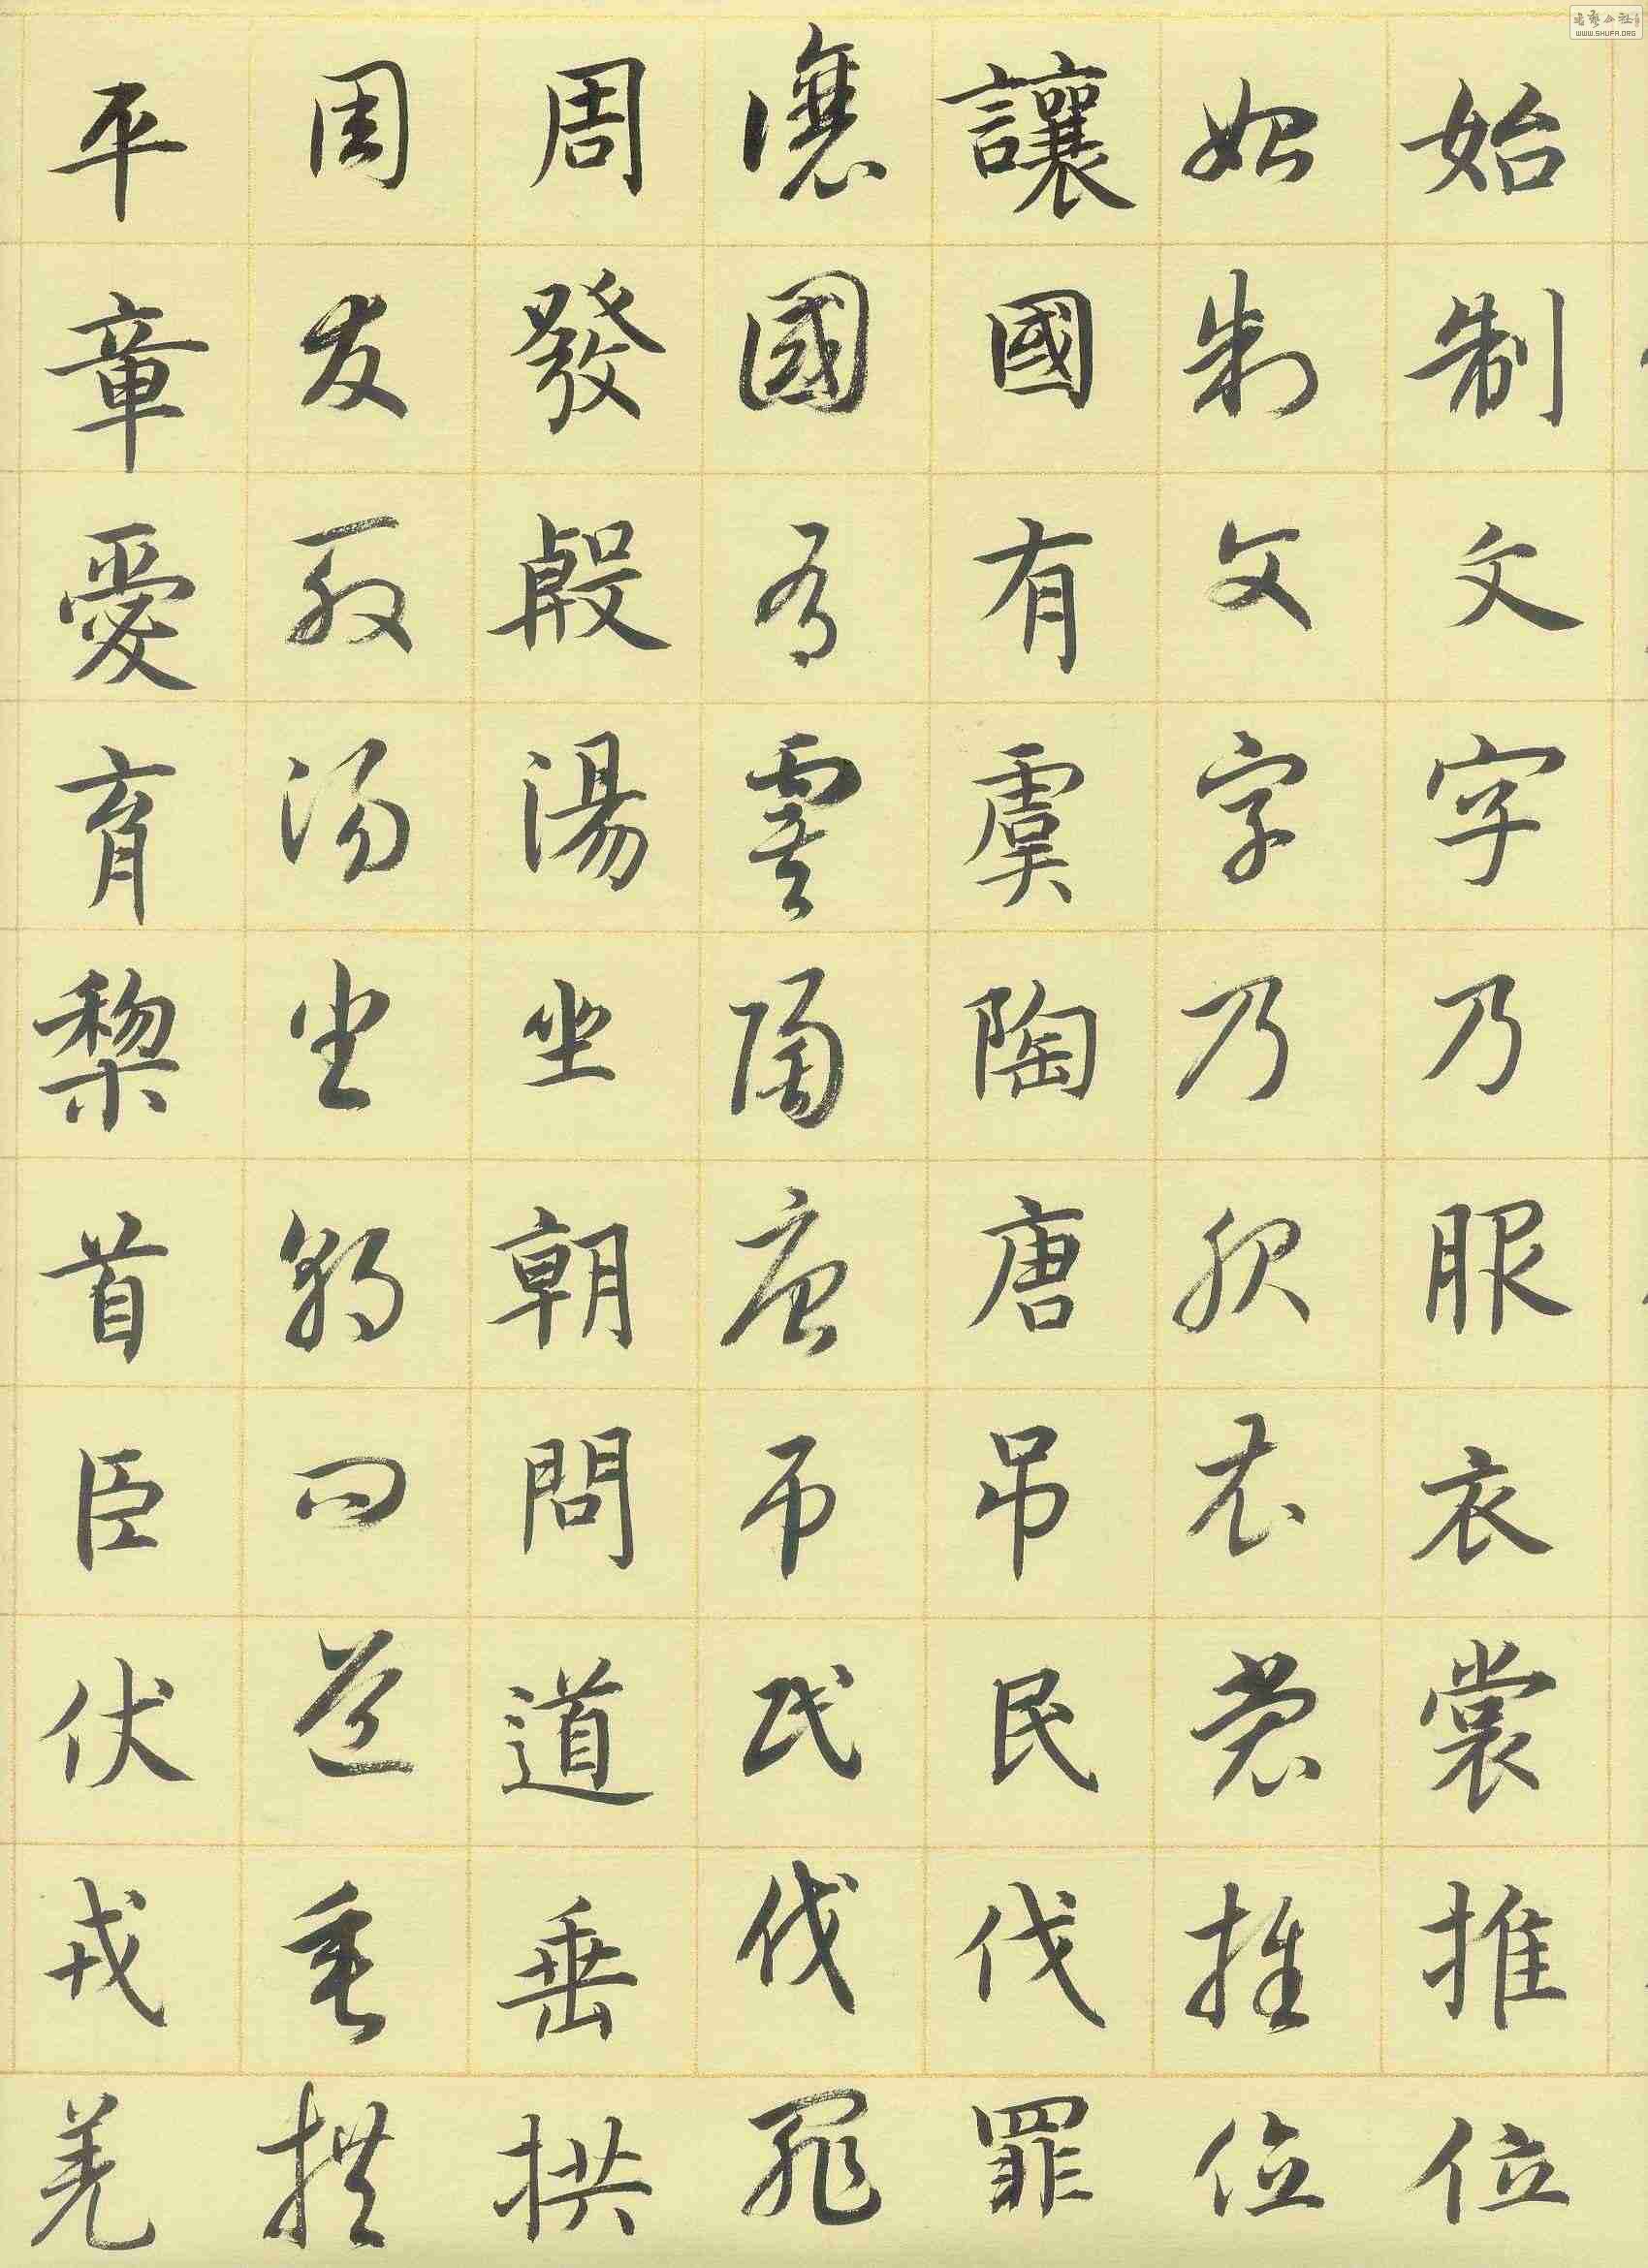 始制文字乃服衣裳推位
始制文字乃服衣裳推位
讓國有虞陶唐吊民伐罪
讓國有虞陶唐吊民伐罪
周發殷湯坐朝問道垂拱
周發殷湯坐朝問道垂拱
平章愛育黎首臣伏戎羌
WWW.SHUFA.ORG